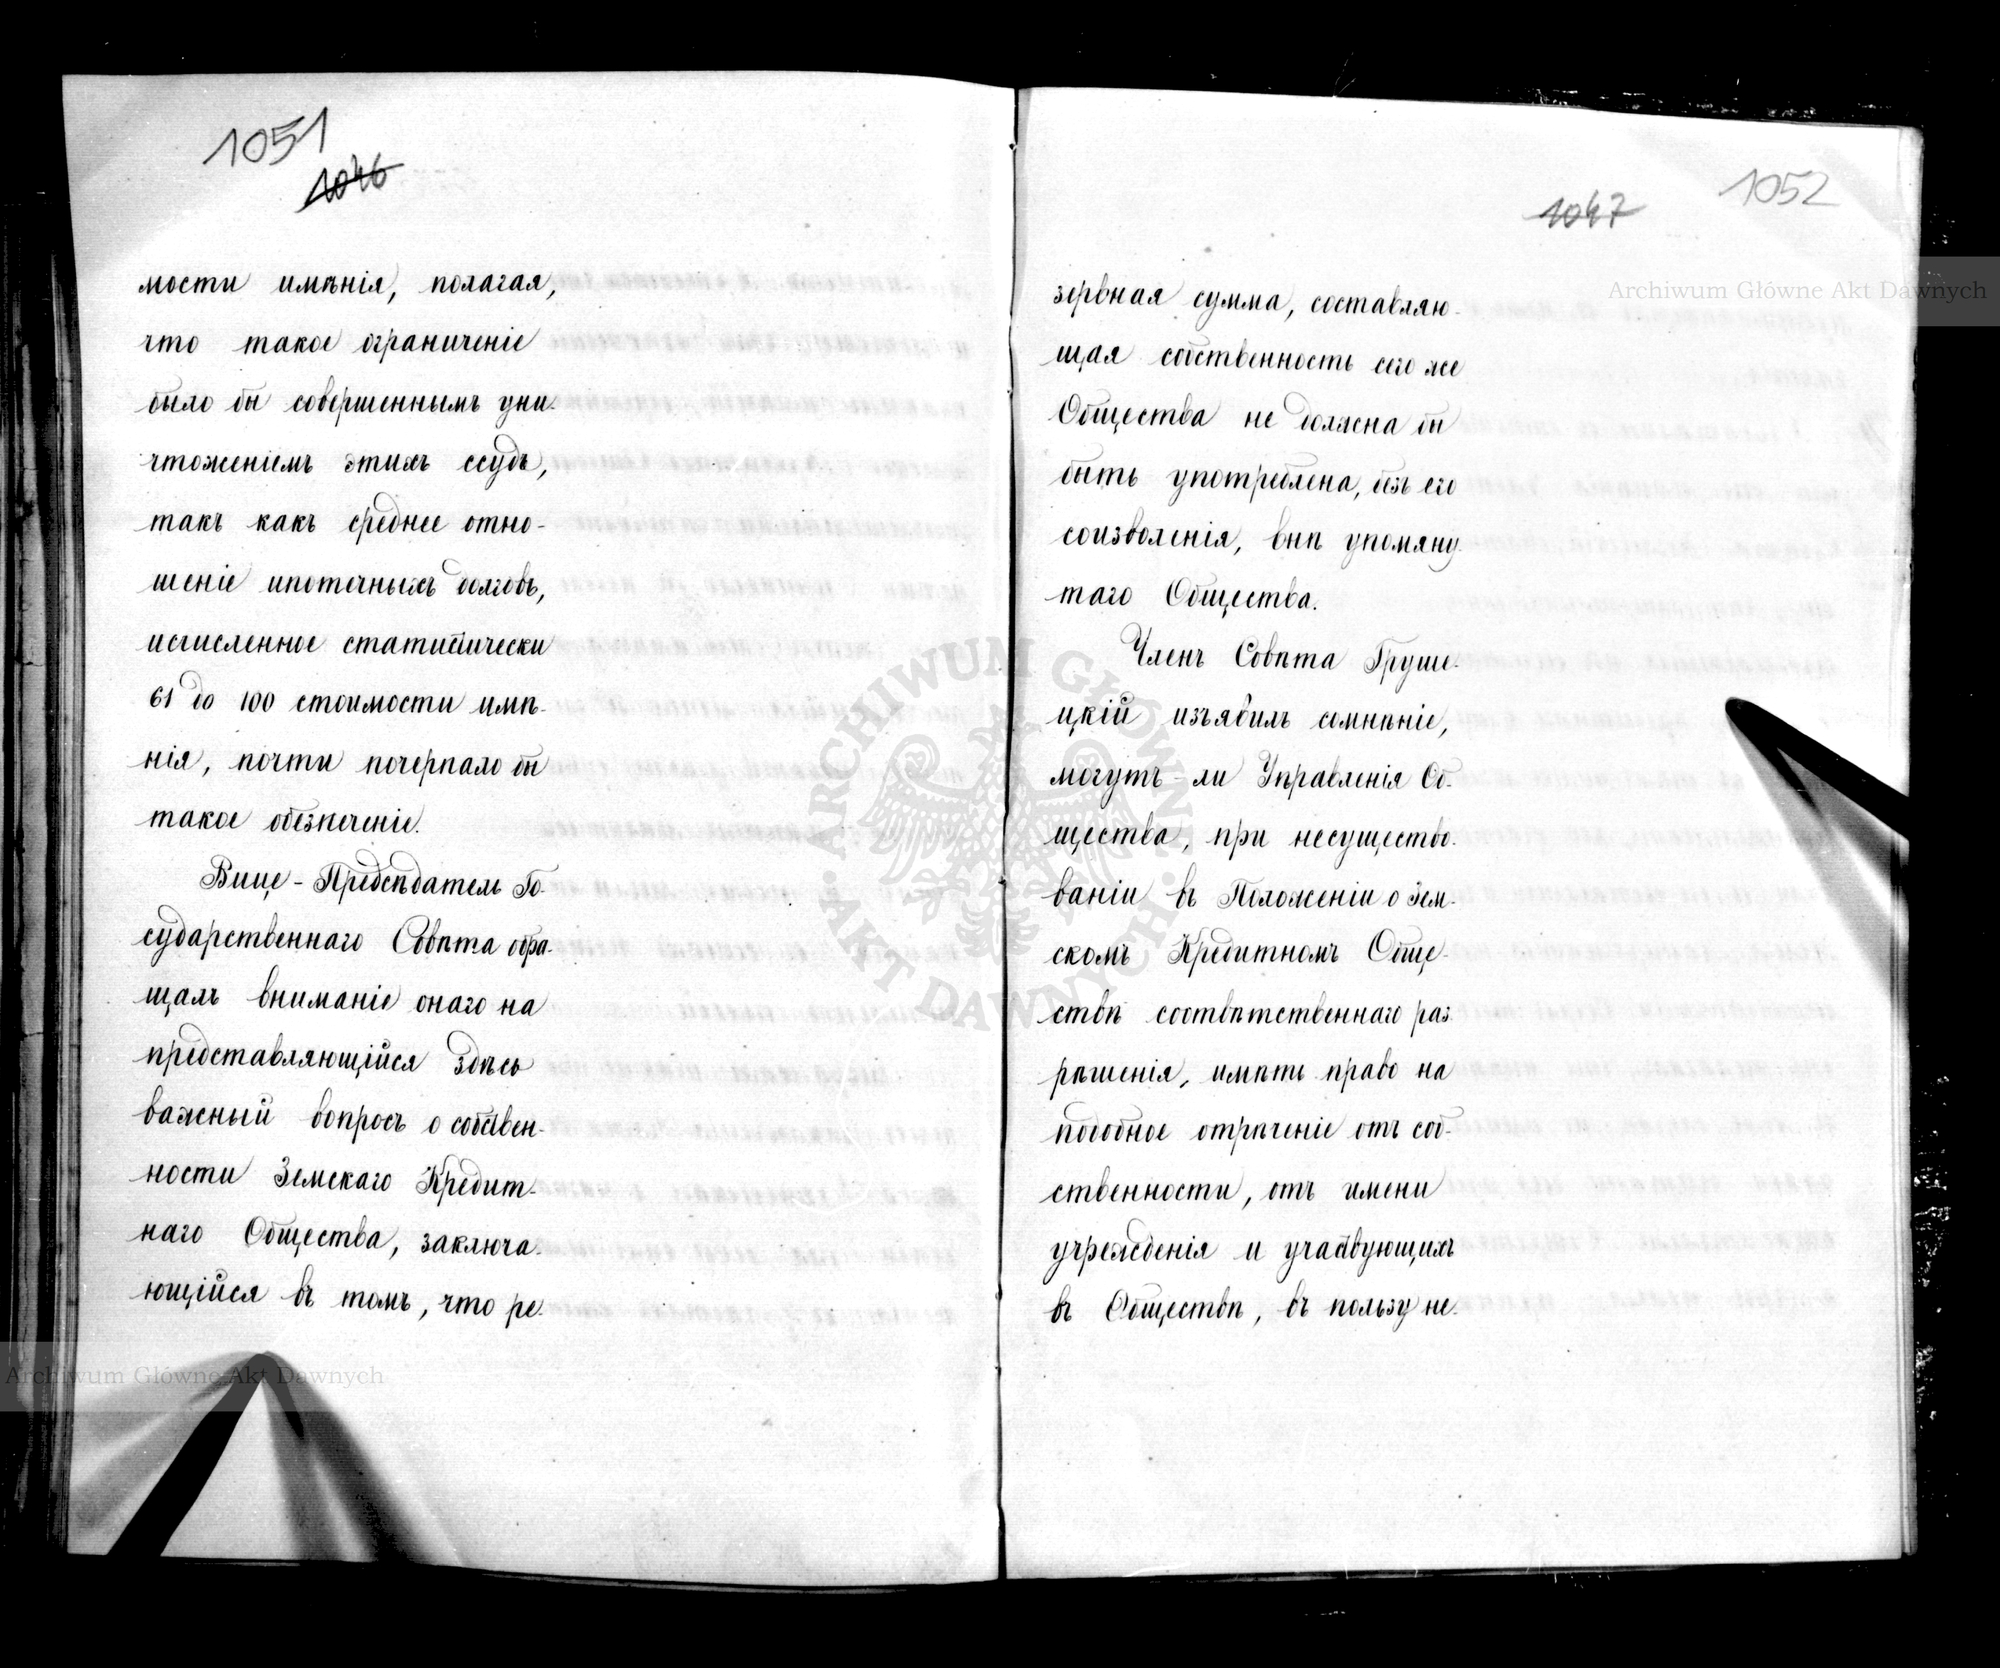 1051
1046
мости имѣнія, полагая,
что такое ограниченіе
было бы совершеннымъ уни-
чтоженіемъ этихъ ссудъ,
такъ какъ среднее отно-
шеніе ипотечныхъ долговъ,
исчисленное статистически
61 до 100 стоимости имѣ-
нія, почти почерпало бы
такое обезпеченіе.
Вице-Предсѣдатель Го-
сударственнаго Совѣта обра-
щалъ вниманіе онаго на
представляющійся здѣсь
важный вопросъ о собствен-
ности Земскаго Кредит-
наго Общества, заключа-
ющійся въ томъ, что ре-
1047
1052
зервная сумма, составляю-
щая собственность сего же
Общества не должна бы
быть употреблена, безъ его
соизволенія, внѣ упомяну-
таго Общества.
Членъ Совѣта Груше-
цкій изъявилъ сомнѣніе,
могутъ-ли Управленія Об-
щества, при несущество-
ваніи въ Положеніи о Зем-
скомъ Кредитномъ Обще-
ствѣ соотвѣтственнаго раз-
рѣшенія, имѣть право на
подобное отрѣченіе отъ соб-
ственности, отъ имени
учрежденія и участвующихъ
въ Обществѣ, въ пользу не-
Archiwum Główne Akt Dawnych
Archiwum Główne Akt Dawnych
ARCHIWUM GŁÓWNE · AKT DAWNYCH ·